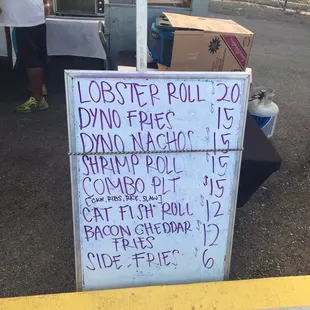 LOBSTER ROLL 20
DYNO FRIES $15
DYNO NACHOS $15
SHRIMP ROLL $15
COMBO PLT $15
[CKN, RIBS, RICE, SLAW]
CAT FISH ROLL 12
BACON CHEDDAR FRIES 12
SIDE FRIES 6